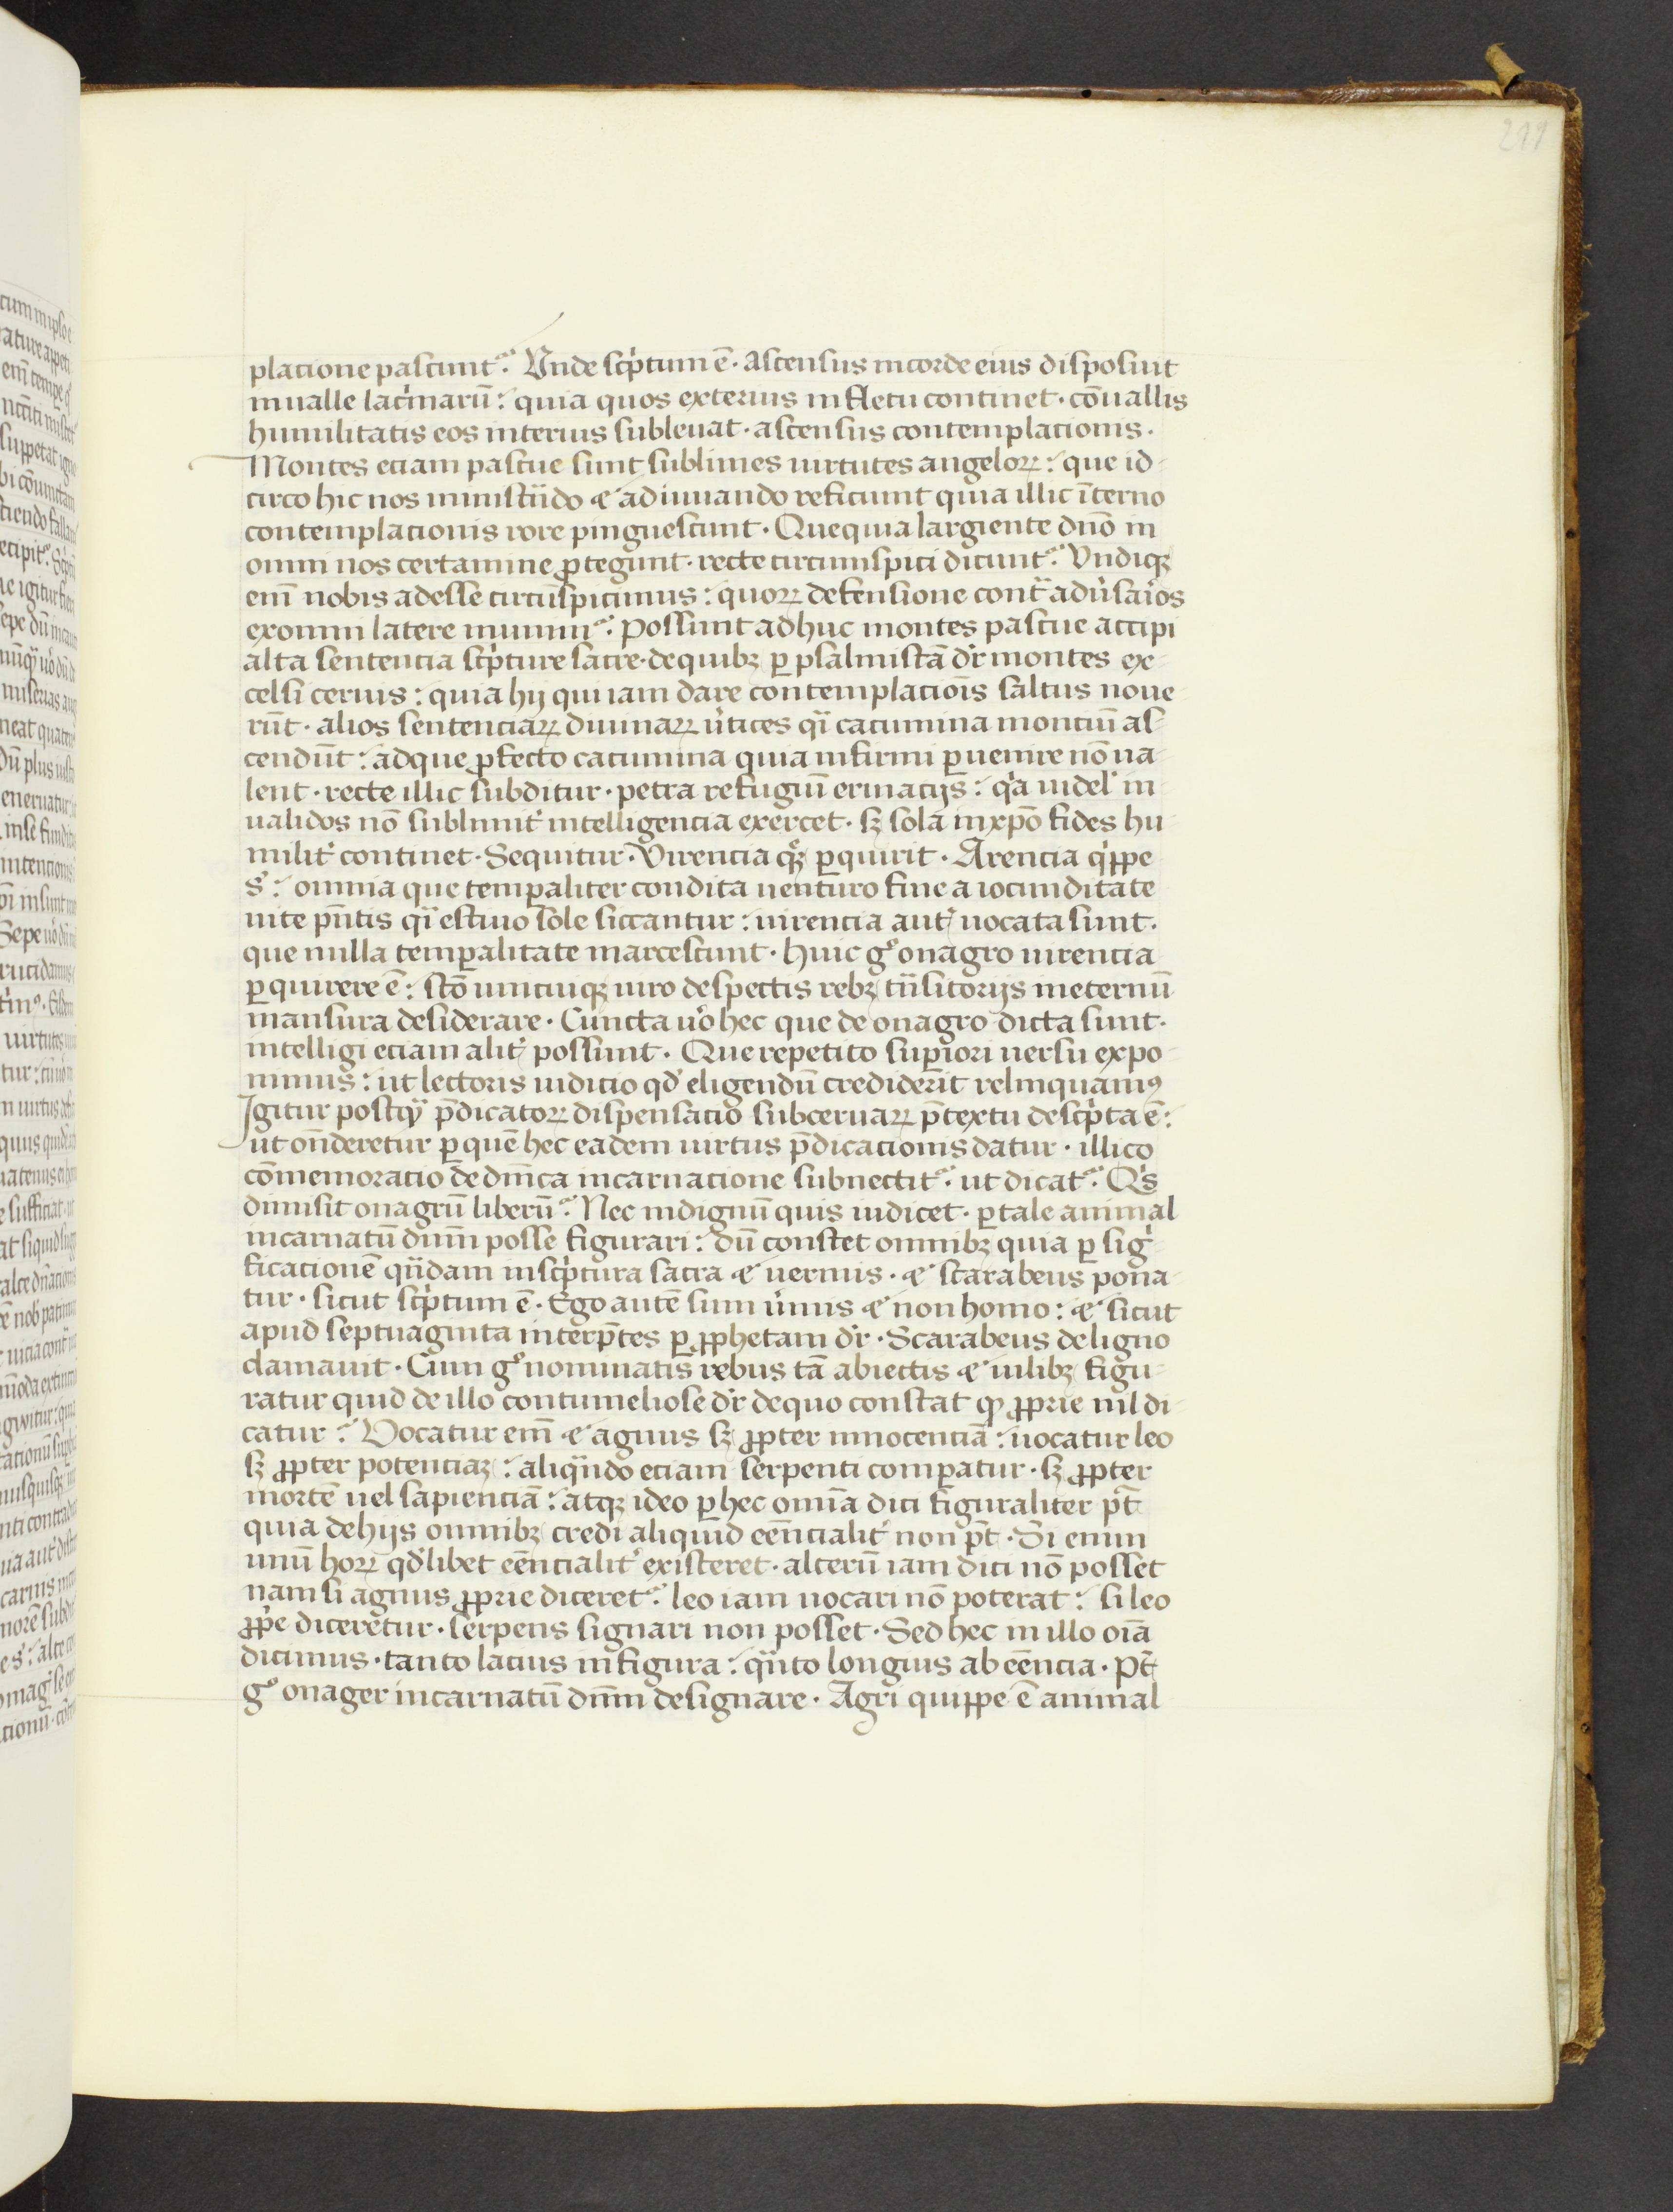 211
placione pascunt᷑. Vnde scͥptum ē · ascensus in corde eius disposuit
in ualle lacͥmarū : quia quos exterius in fletu continet · cōuallis
humilitatis eos interius subleuat · ascensus contemplacionis ·
Montes eciam pascue sunt sublimes uirtutes angeloꝝ : que id-
circo hic nos ministͣdo ⁊ adiuuando reficiunt quia illic īterno
contemplacionis rore pinguescunt · Que quia largiente dn̄o in
omni nos certamine ꝓtegunt · recte circumspici dicunt᷑. Vndiqꝫ
em̄ nobis adesse circūspicimus : quoꝝ defensione contͣ adu͛saͥos
ex omni latere munimur᷑. possunt adhuc montes pascue accipi
alta sentencia scͥpture sacre · de quibꝫ ꝑ psalmistā dr̄ montes ex-
celsi ceruis : quia hij qui iam dare contemplaciōis saltus noue-
rūt · altos sentenciaꝝ diuinaꝝ u͛tices qͣi cacumina montiū as-
cendūt : ad que ꝓfecto cacumina quia infirmi ꝑuenire nō ua-
lent · recte illic subditur · petra refugiū erinacijs : qͥa uidelꝫ in-
ualidos nō sublimit͛ intelligencia exercet · sꝫ sola in xp̄o fides hu-
milit͛ continet · Sequitur · Virencia qͦꝫ ꝑquirit · Arencia qͥppe
s͛ : omnia que temꝑaliter condita uenturo fine a iocunditate
uite pn̄tis qͣi estiuo sole siccantur : uirencia aut͛ uocata sunt ·
que nulla temꝑalitate marcescunt · huic gͦ onagro uirencia
ꝑquirere ē : scō unicuiqꝫ uiro despectis rebꝫ tͣnsitorijs in eternū
mansura desiderare · Cuncta uͦo hec que de onagro dicta sunt ·
intelligi eciam alit͛ possunt · Que repetito suꝑiori uersu expo-
nimus : ut lectoris iudicio qd̛ eligendū crediderit relinquamꝰ
Igitur postqͣ p̄dicatoꝝ dispensacio sub ceruaꝝ p̄textu descͥpta ē :
ut on̄deretur ꝑ quē hec eadem uirtus p̄dicacionis datur · illico
cōmemoratio de dn̄ica incarnacione subnectit᷑. ut dicat᷑. Qͥs
dimisit onagrū liberū᷑. Nec indignū quis iudicet · ꝑ tale animal
incarnatū dn̄m posse figurari : dū constet omnibꝫ quia ꝑ sigͥ-
ficacionē qͣdam in scͥptura sacra ⁊ uermis · ⁊ scarabeus pona-
tur · sicut scͥptum ē · Ego autē sum u͛mis ⁊ non homo : ⁊ sicut
apud septuaginta interp̄tes ꝑ ꝓphetam dr̄ · Scarabeus de ligno
clamauit · Cum gͦ nominatis rebus tā abiectis ⁊ uilibꝫ figu-
ratur quid de illo contumeliose dr̄ de quo constat ꝙ ꝓprie nil di-
catur : Vocatur em̄ ⁊ agnus sꝫ ꝓpter innocenciā : uocatur leo
sꝫ ꝓpter potenciaꝫ : aliqͣndo eciam serpenti comꝑatur · sꝫ ꝓpter
mortē uel sapienciā : atqꝫ ideo ꝑ hec om̄ia dici figuraliter pt̄
quia de hijs omnibꝫ credi aliquid eēncialit͛ non pt̄ · Si enim
unū hoꝝ qd̛libet eēncialit͛ existeret · alterū iam dici nō posset
nam si agnus ꝓprie diceret᷑. leo iam uocari nō poterat : si leo
ꝓpͥe diceretur · serpens signari non posset · Sed hec in illo oīa
dicimus · tanto lacius in figura : qͣnto longius ab eēncia · Pt̄
gͦ onager incarnatū dn̄m designare · Agri quippe ē animal